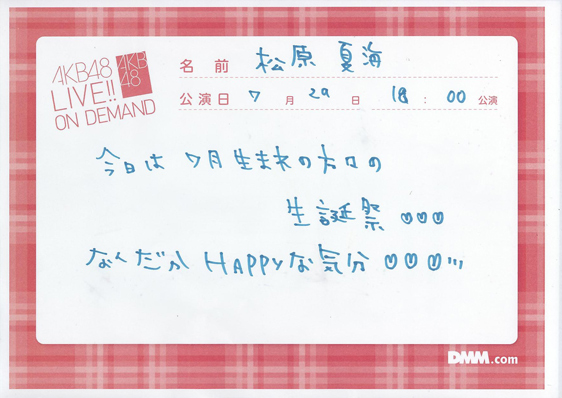 AKB48
LIVE!!
ON DEMAND
AKB
48
名前 松原夏海
公演日 7月29日 18:00公演
今日は7月生まれの方々の
生誕祭
なんだか HAPPYな気分
DMM.com